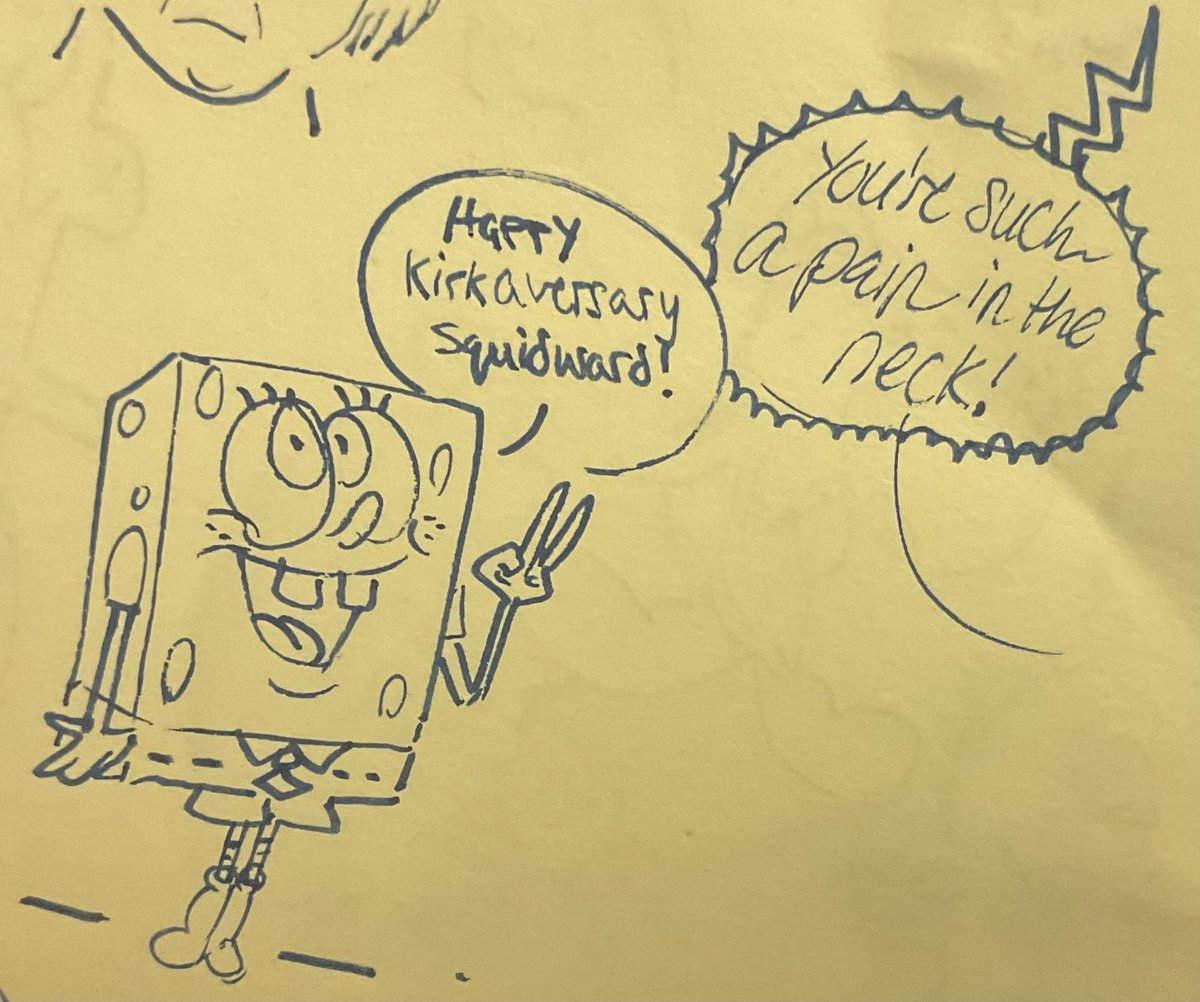 Happy
Kirkaversary
Squidward!
You're such
a pain in the
neck!